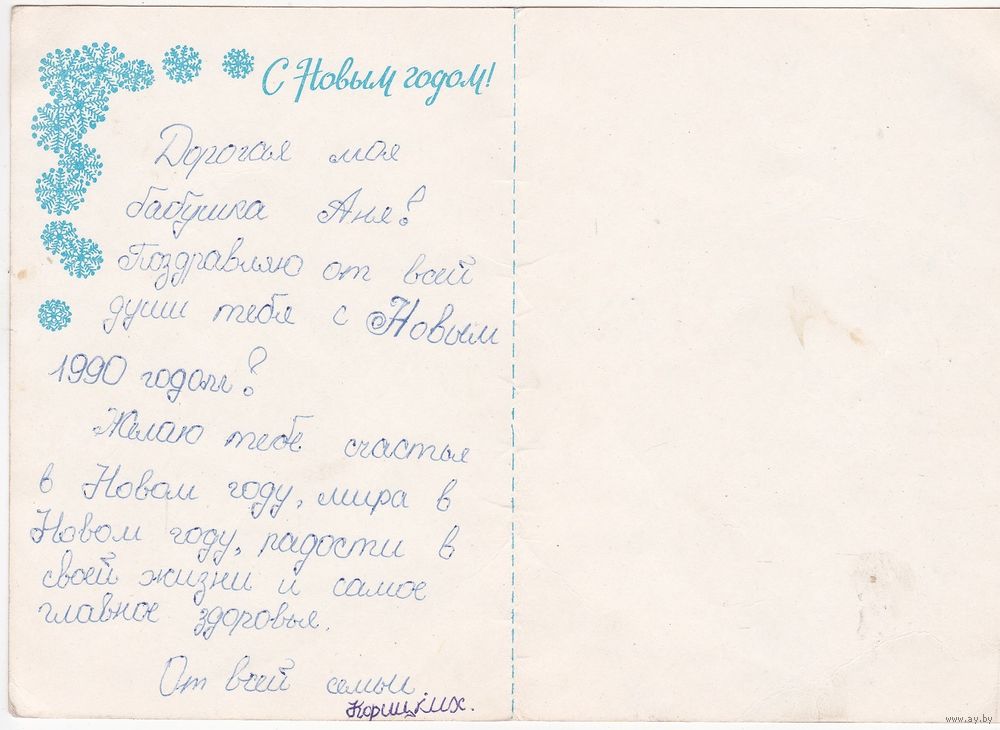 С Новым годом!
Дорогая моя
бабушка Аня!
Поздравляю от всей
души тебя с Новым
1990 годом!
Желаю тебе счастья
в Новом году, мира в
Новом году, радости в
своей жизни и самое
главное здоровья.
От всей семьи
www.ay.by